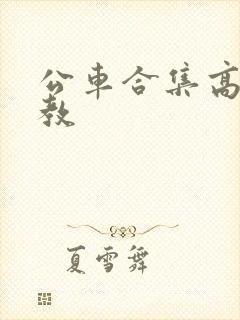 公車合集高
教
夏雪舞